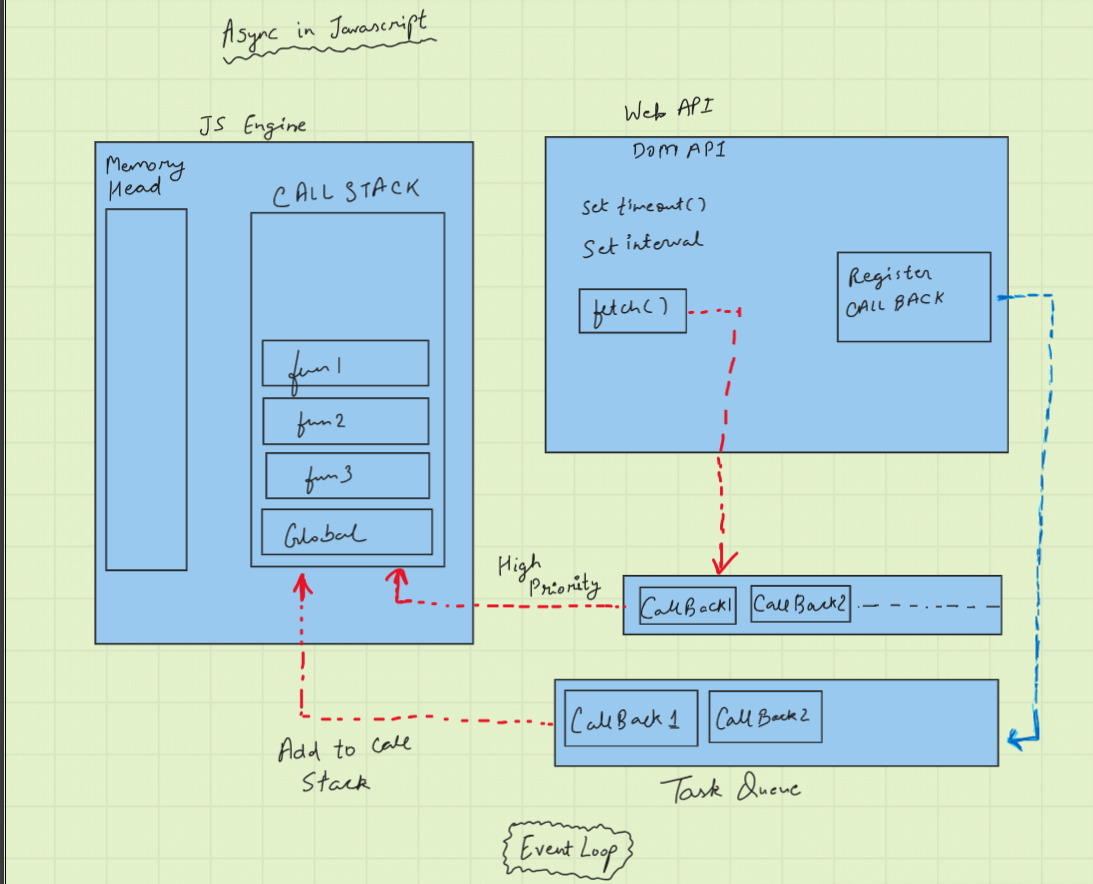 Async in Javascript
JS Engine
Memory
Head
CALL STACK
fun 1
fun 2
fun 3
Global
Web API
DOM API
Set timeout()
Set interval
fetch()
Register
CALL BACK
High
Priority
CallBack1
CallBack2
CallBack 1
CallBack2
Task Queue
Add to Call
Stack
Event Loop